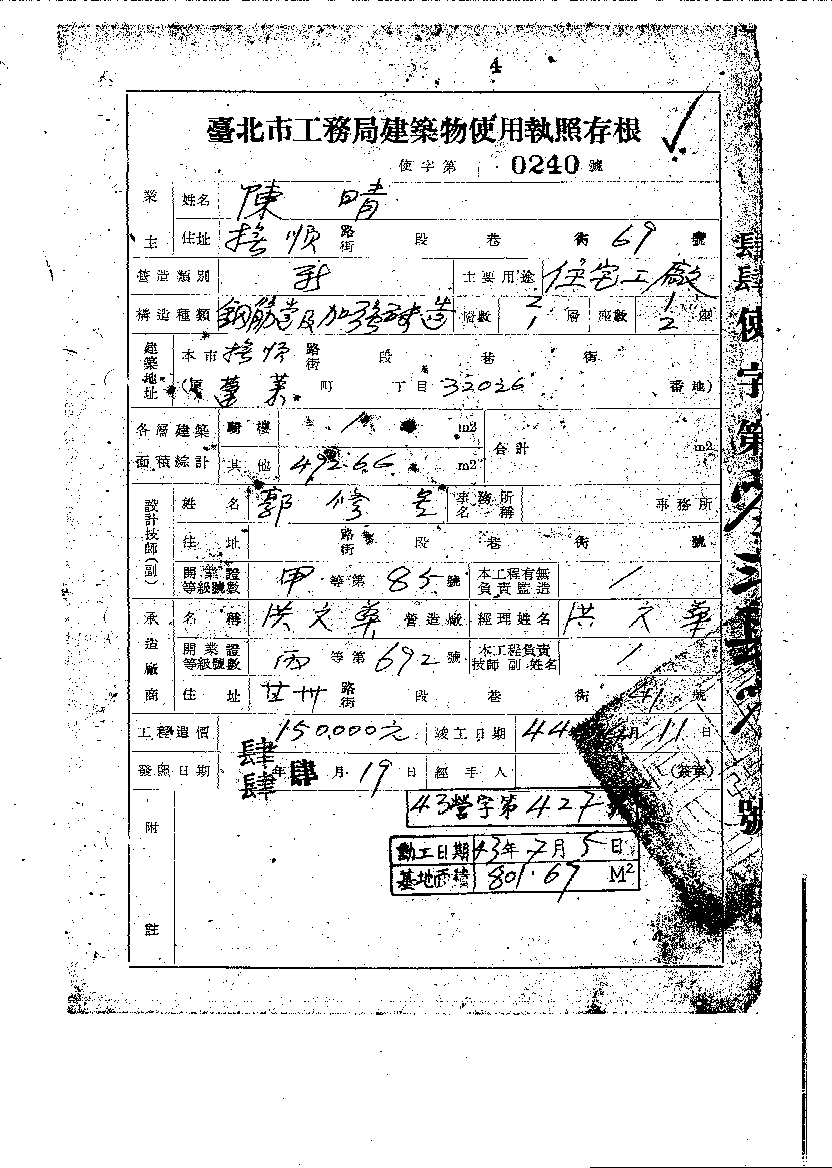 4
臺北市工務局建築物使用執照存根
使字第 0240 號
業主 姓名 陳 晴
住址 撫順 路街 段 巷 衖 69 號
營造類別 新 主要用途 住宅工廠
構造種類 鋼筋造及加強磚造 層數 2 1 層 座數 1 2 座
建築地址 本市 撫順 路街 段 巷 衖
(原 蓬萊 町 丁目 32026 番地)
各層建築面積綜計 騎樓 m2 合計 m2
其他 492.66 m2
設計技師(副) 姓名 郭修 事務所名稱 事務所
住址 路街 段 巷 衖 號
開業證等級號數 甲 等第 85 號 本工程有無負責監造
承造廠商 名稱 洪文華 營造廠 經理姓名 洪文華
開業證等級號數 丙 等第 692 號 本工程負責技師副姓名
住址 甘州 路街 段 巷 衖 41 號
工程造價 150,000元 竣工日期 44 月 11 日
發照日期 肆肆 年 肆 月 19 日 經手人 (簽章)
附註
43營字第427
動工日期 43年7月5日
基地面積 801.69 M²
肆肆使字第
號